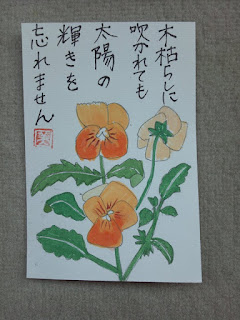 木枯らしに
吹かれても
太陽の
輝きを
忘れません